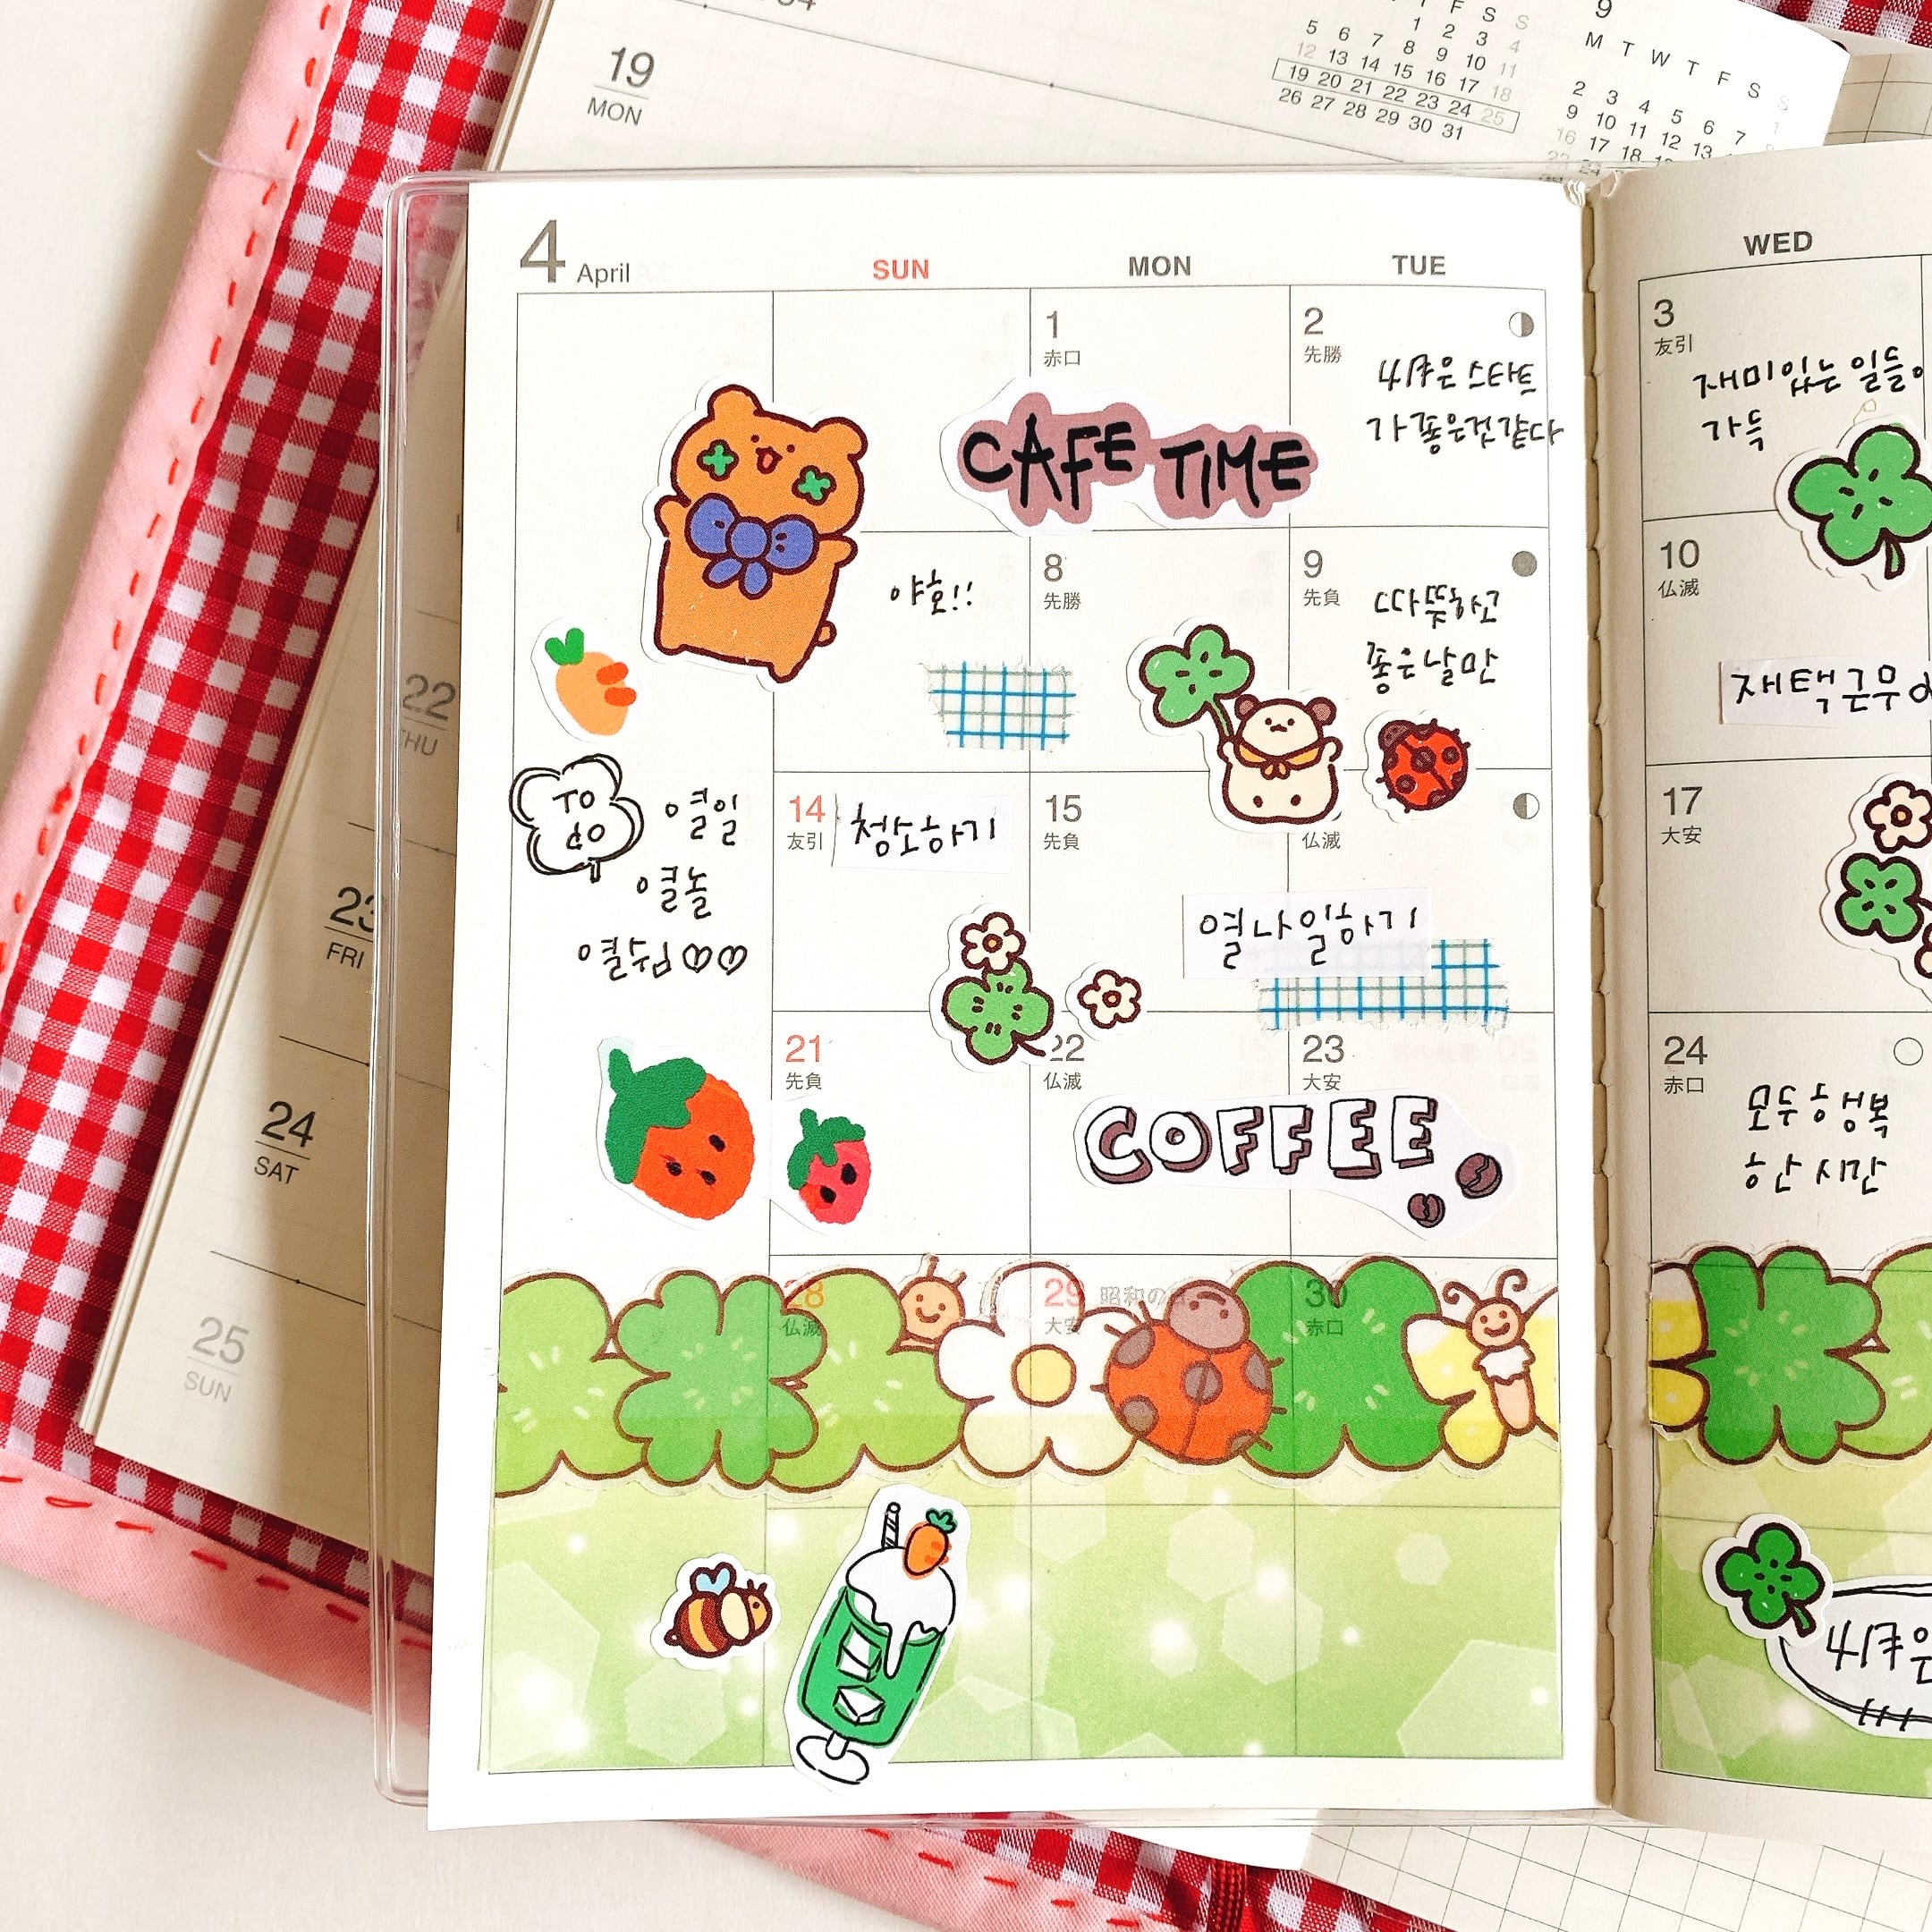 19
MON
1 2 3 4
5 6 7 8 9 10 11
12 13 14 15 16 17 18
19 20 21 22 23 24 25
26 27 28 29 30 31
9
M T W T F S S
2 3 4 5 6 7
9 10 11 12 13
16 17 18
22
THU
23
FRI
24
SAT
25
SUN
4 April
SUN MON TUE WED
1
赤口
2
先勝
3
友引
CAFE TIME
시작은 스타벅
가 좋은것같다
재미있는 일들
가득
야호!!
8
先勝
9
先負
따뜻하고
좋은날만
10
仏滅
재택근무
TO
DO
열일
열놀
열쉼
14
友引
청소하기
15
先負
仏滅
열나일하기
17
大安
21
先負
22
仏滅
23
大安
COFFEE
24
赤口
모두 행복
한 시간
28
仏滅
29 昭和の
大安
30
赤口